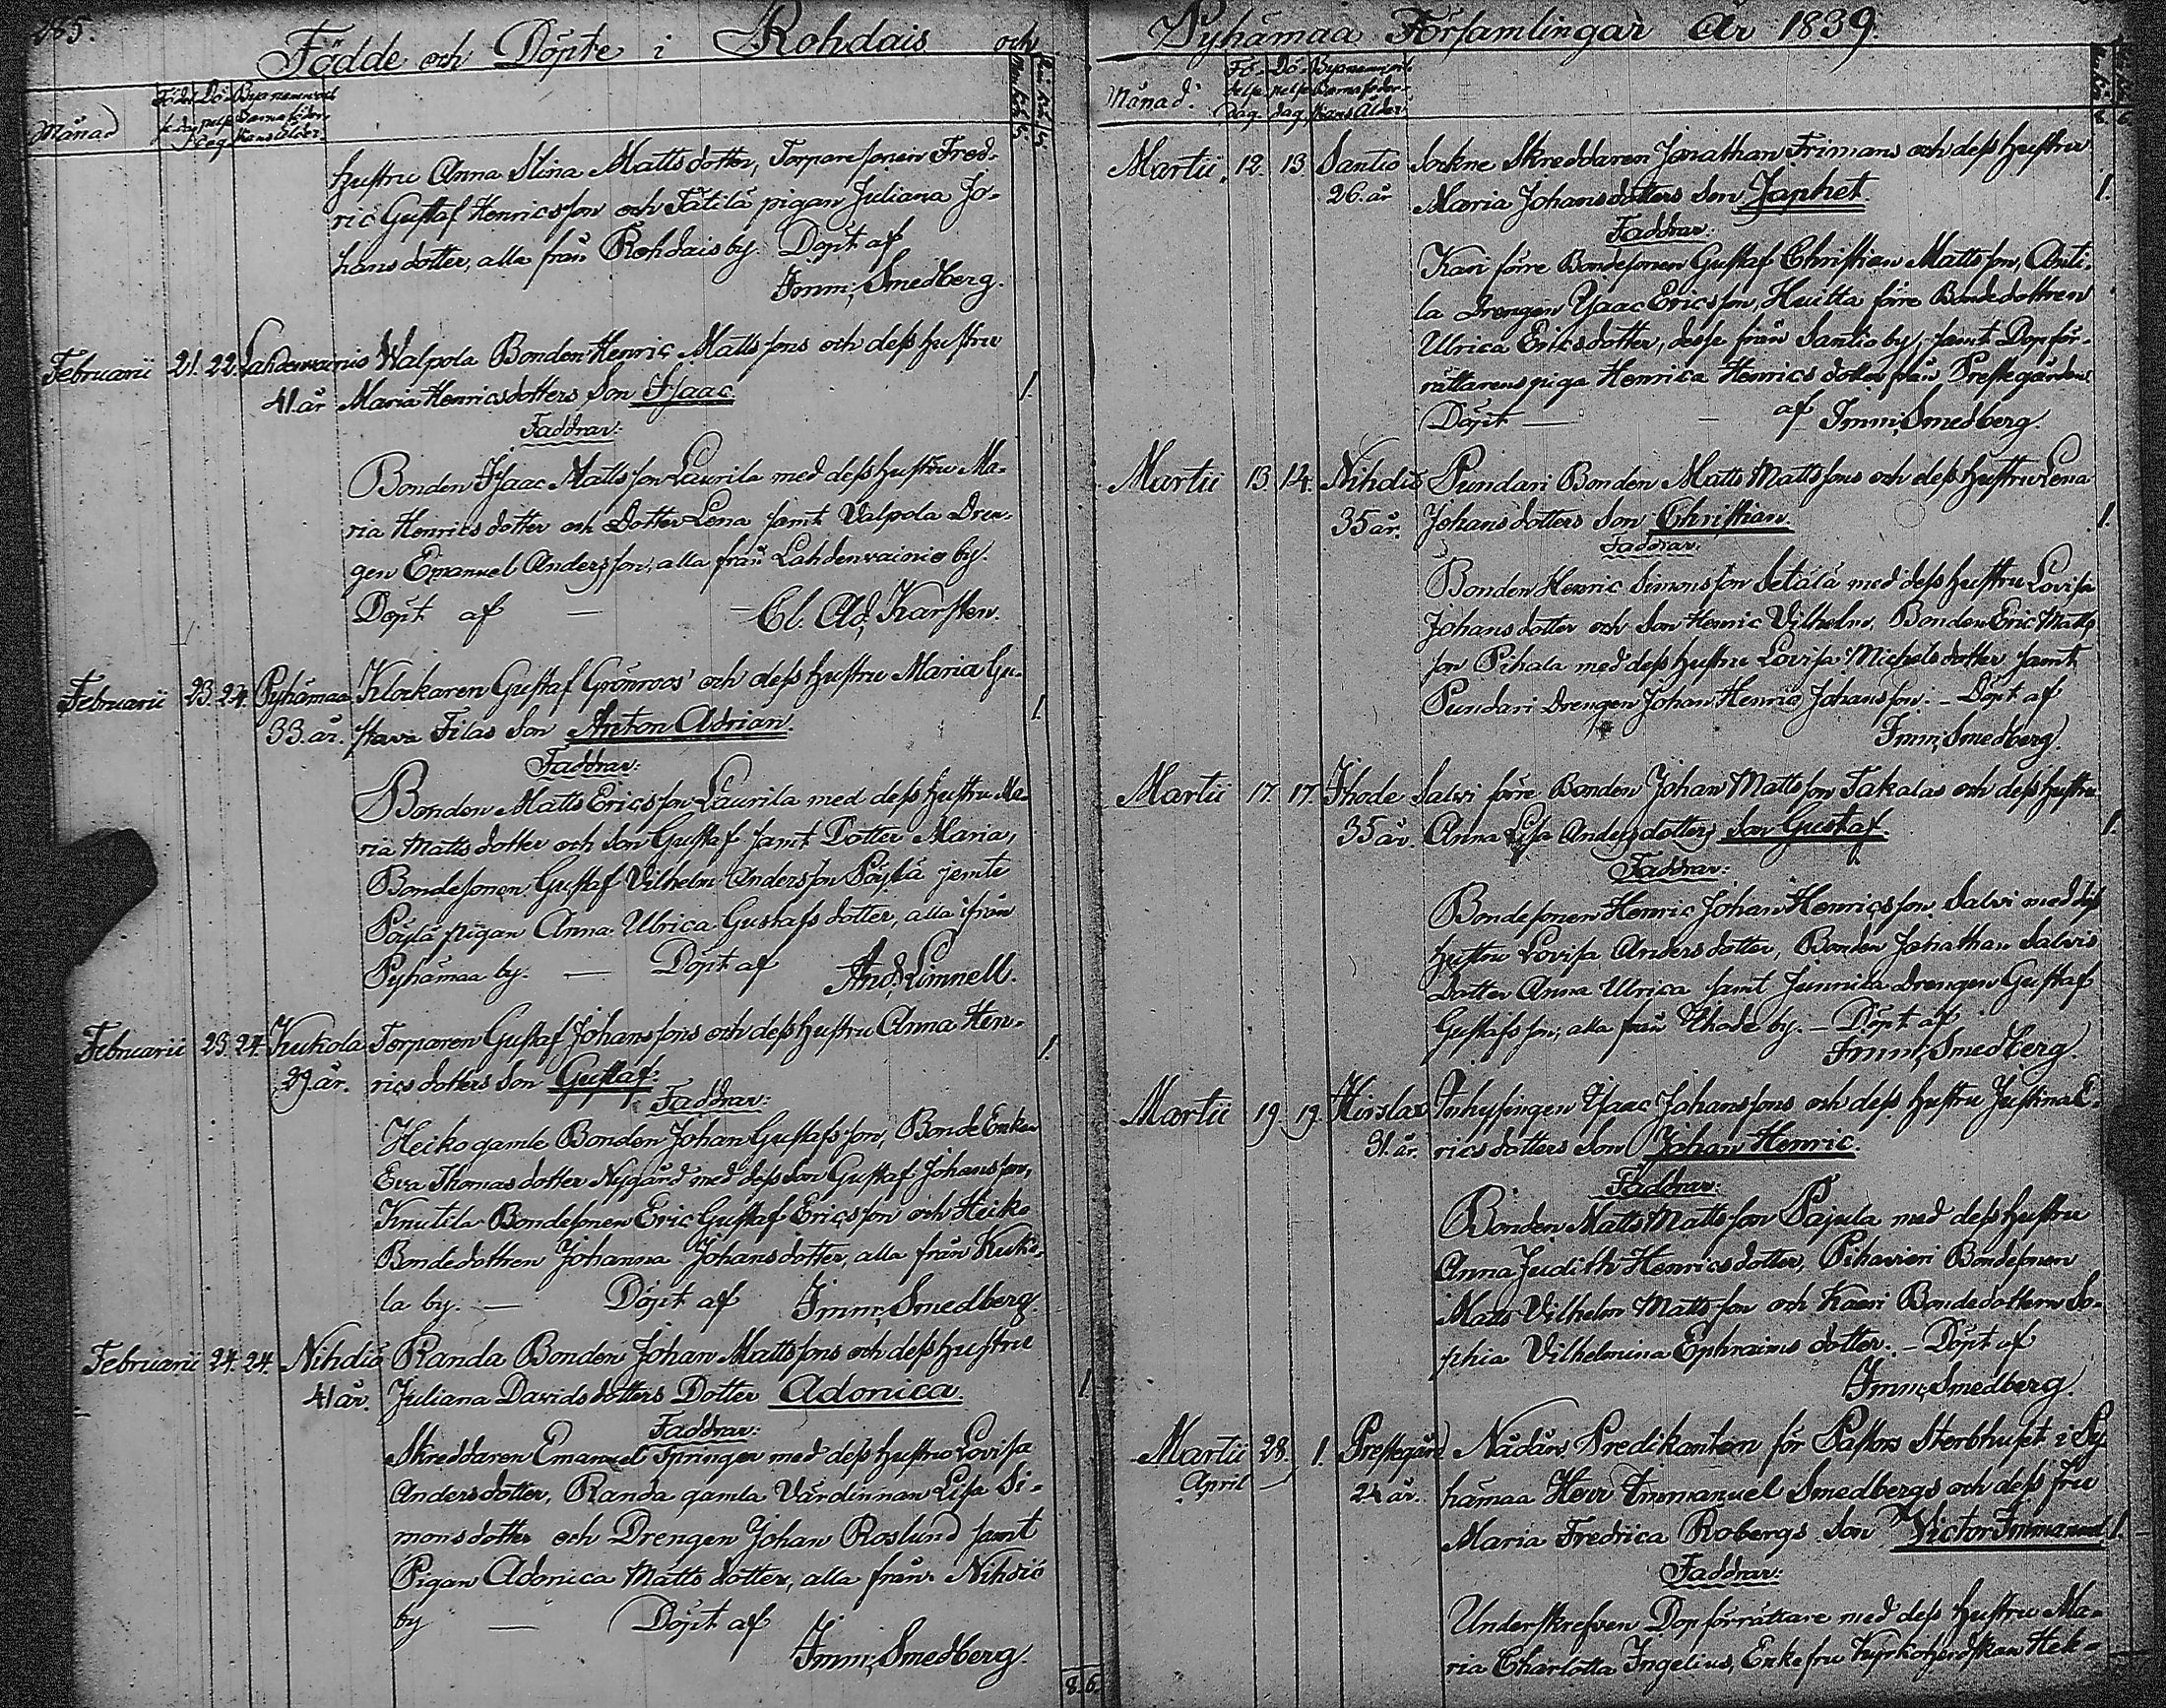 Födde och Döpte i Rohdais och
Månad
Hustru Anna Stina Matts dotter, Torparesonen Fred-
ric Gustaf Henricsson och Tätilä pigan Juliana Jo-
hans dotter, alla från Rohdais by. Döpt af
Imm; Smedberg.
Februarii 21. 22. Lahdenvainio Walpola Bonden Henric Mattssons och dess hustru
41. år Maria Henricsdotters Son Isaac. 1.
Faddrar:
Bonden Isaac Mattsson Laurila med dess hustru Ma-
ria Henrics dotter och Dotter Lena samt Valpola Dren-
gen Emanuel Andersson, alla från Lahdenvainio by.
Döpt af — — Cl. Ad; Karsten.
Februarii 23. 24. Pyhämaa Klockaren Gustaf Grönroos' och dess hustru Maria Gu-
33. år. stava Filas Son Anton Adrian. 1.
Faddrar:
Bonden Matts Ericsson Laurila med dess hustru Ma-
ria Matts dotter och Son Gustaf samt Dotter Maria,
Bondesonen Gustaf Vilhelm Andersson Pöylä jemte
Pöylä pigan Anna Ulrica Gustafs dotter, alla ifrån
Pyhämaa by. — Döpt af And; Limnell.
Februarii 23. 24. Kukola Torparen Gustaf Johanssons och dess hustru Anna Hen-
29 år. rics dotters Son Gustaf. 1.
Faddrar:
Heiko gamle Bonden Johan Gustafsson, Bonde Enkan
Eva Thomas dotter Nygård med dess Son Gustaf Johansson,
Knutila Bondesonen Eric Gustaf Ericsson och Heiko
Bondedottren Johanna Johansdotter, alla från Kuko-
la by. — Döpt af Imm; Smedberg.
Februarii 24. 24. Nihdiö Randa Bonden Johan Mattssons och dess hustru
41 år. Juliana Davids dotters Dotter Adonica. 1.
Faddrar:
Skreddaren Emanuel Springer med dess hustru Lovisa
Andersdotter, Randa gamla Värdinnan Lisa Si-
mons dotter och Drengen Johan Roslund samt
Pigan Adonica Matts dotter, alla från Nihdiö
by — Döpt af
Imm; Smedberg.
8. 6.
Pyhämaa Församlingar År 1839.
Månad.
Martii. 12. 13. Santio Sockne Skreddaren Jonathan Frimans och dess hustru
26. år Maria Johansdotters Son Japhet. 1.
Faddrar:
Kari förre Bondesonen Gustaf Christian Mattsson, Anti-
la Drengen Ysaac Ericsson, Huitta förre Bondedottren
Ulrica Ericsdotter, desse från Santio by, samt Dopför-
rättarens piga Henrica Henrics dotter från Prestegården.
Döpt — — af Imm; Smedberg.
Martii 13. 14. Nihdiö Pundari Bonden Matts Mattssons och dess hustru Lena
35 år. Johans dotters Son Christian. 1.
Faddrar:
Bonden Henric Simonsson Setälä med dess hustru Lovisa
Johans dotter och Son Henric Vilhelm, Bonden Eric Matts
son Pihala med dess hustru Lovisa Michels dotter samt
Pundari Drengen Johan Henric Johansson. — Döpt af
Imm; Smedberg.
Martii 17. 17. Ihode Salvi förre Bonden Johan Mattsson Takalas och dess hustru
35 år. Anna Lisa Andersdotters Son Gustaf. 1.
Faddrar:
Bondesonen Henric Johan Henricsson Salvi med dess
hustru Lovisa Anders dotter, Bonden Jonathan Salvis
Dotter Anna Ulrica samt Junnila Drengen Gustaf
Gustafsson, alla från Ihode by. — Döpt af
Imm; Smedberg.
Martii 19. 19. Hirslax Inhysingen Ysaac Johanssons och dess hustru Justina E-
31. år. rics dotters Son Johan Henric.
Faddrar:
Bonden Matts Mattsson Pajula med dess hustru
Anna Judith Henricsdotter, Pihavieri Bondesonen
Matts Vilhelm Mattsson och Kaeri Bondedottern So-
phia Vilhelmina Ephraims dotter. — Döpt af
Imm; Smedberg.
Martii 28. 1. Prestegård Nådårs Predikanten för Pastors Sterbhuset i Py-
April — 24 år. hämaa Herr Immanuel Smedbergs och dess fru
Maria Fredrica Robergs Son Victor Immanuel. 1.
Faddrar:
Underskrefven Dopförrättare med dess hustru Ma-
ria Charlotta Ingelius, Enkefru Kyrkoherdskan Hek-